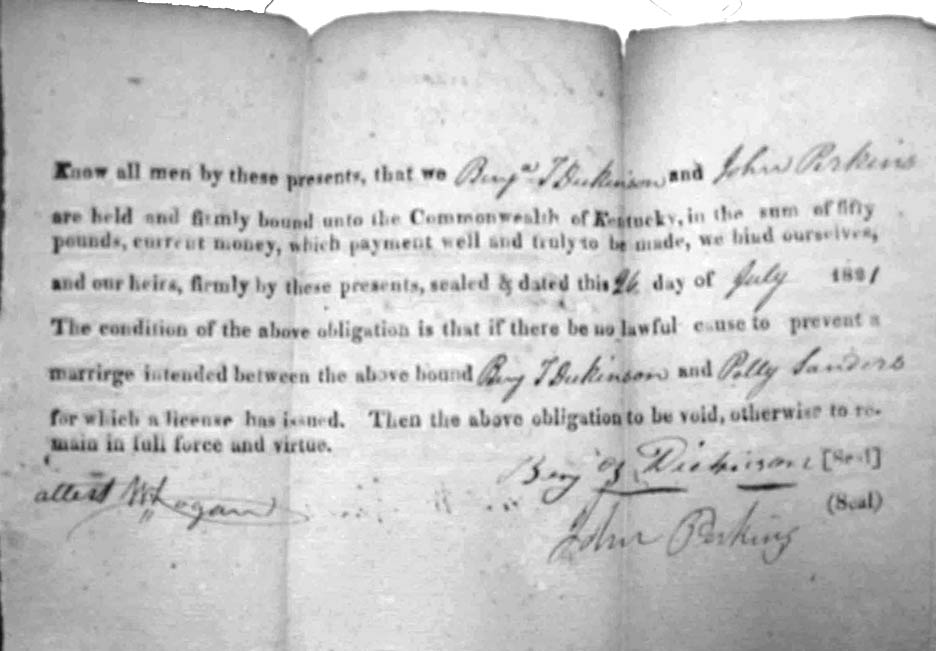 Know all men by these presents, that we Benjn T Dickinson and John Perkins
are held and firmly bound unto the Commonwealth of Kentucky, in the sum of fifty
pounds, current money, which payment well and truly to be made, we bind ourselves,
and our heirs, firmly by these presents, sealed & dated this 26 day of July 1821
The condition of the above obligation is that if there be no lawful cause to prevent a
marrirge intended between the above bound Benj T Dickinson and Polly Sanders
for which a license has issued. Then the above obligation to be void, otherwise to re-
main in full force and virtue.
Benj Dickinson [Seal]
attest Logan (Seal)
John Perkins